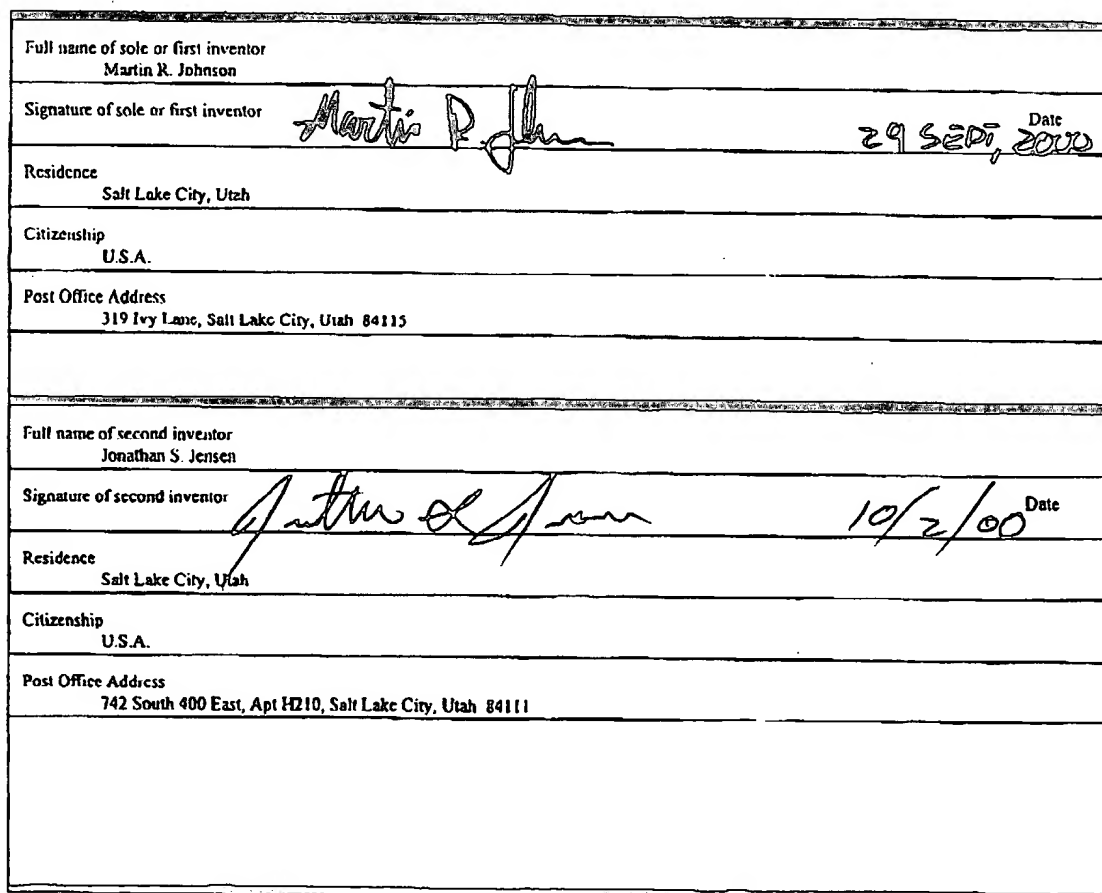 Full name of sole or first inventor
Martin R. Johnson
Signature of sole or first inventor Martin R. Johnson Date 29 SEPT, 2000
Residence
Salt Lake City, Utah
Citizenship
U.S.A.
Post Office Address
319 Ivy Lane, Salt Lake City, Utah 84115
Full name of second inventor
Jonathan S. Jensen
Signature of second inventor Date 10/2/00
Residence
Salt Lake City, Utah
Citizenship
U.S.A.
Post Office Address
742 South 400 East, Apt H210, Salt Lake City, Utah 84111